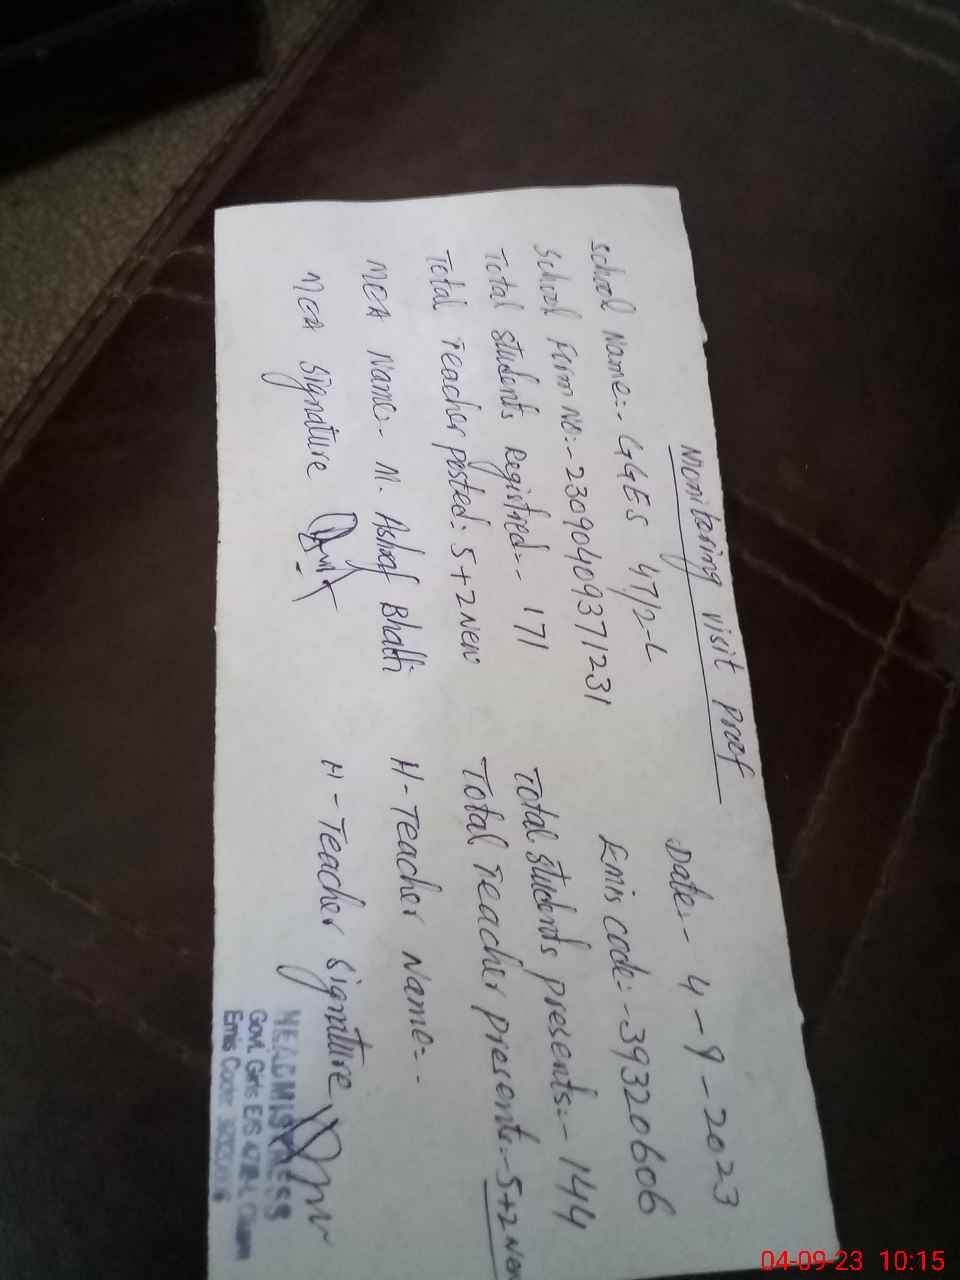 Monitoring visit Proof
Date:- 4-9-2023
School Name:- GGES 47/2-L
Emis code:- 39320606
School Form No:- 23090409371231
Total students Registred:- 171
Total students presents:- 144
Total Teacher posted:- 5+2 New
Total Teacher present:- 5+2 New
MEA Name:- M. Ashraf Bhatti
H-Teacher Name:-
MEA Signature
H-Teacher Signature
HEADMISTRESS
Govt. Girls E/S 47/2-L
Emis Code:
04-09-23 10:15